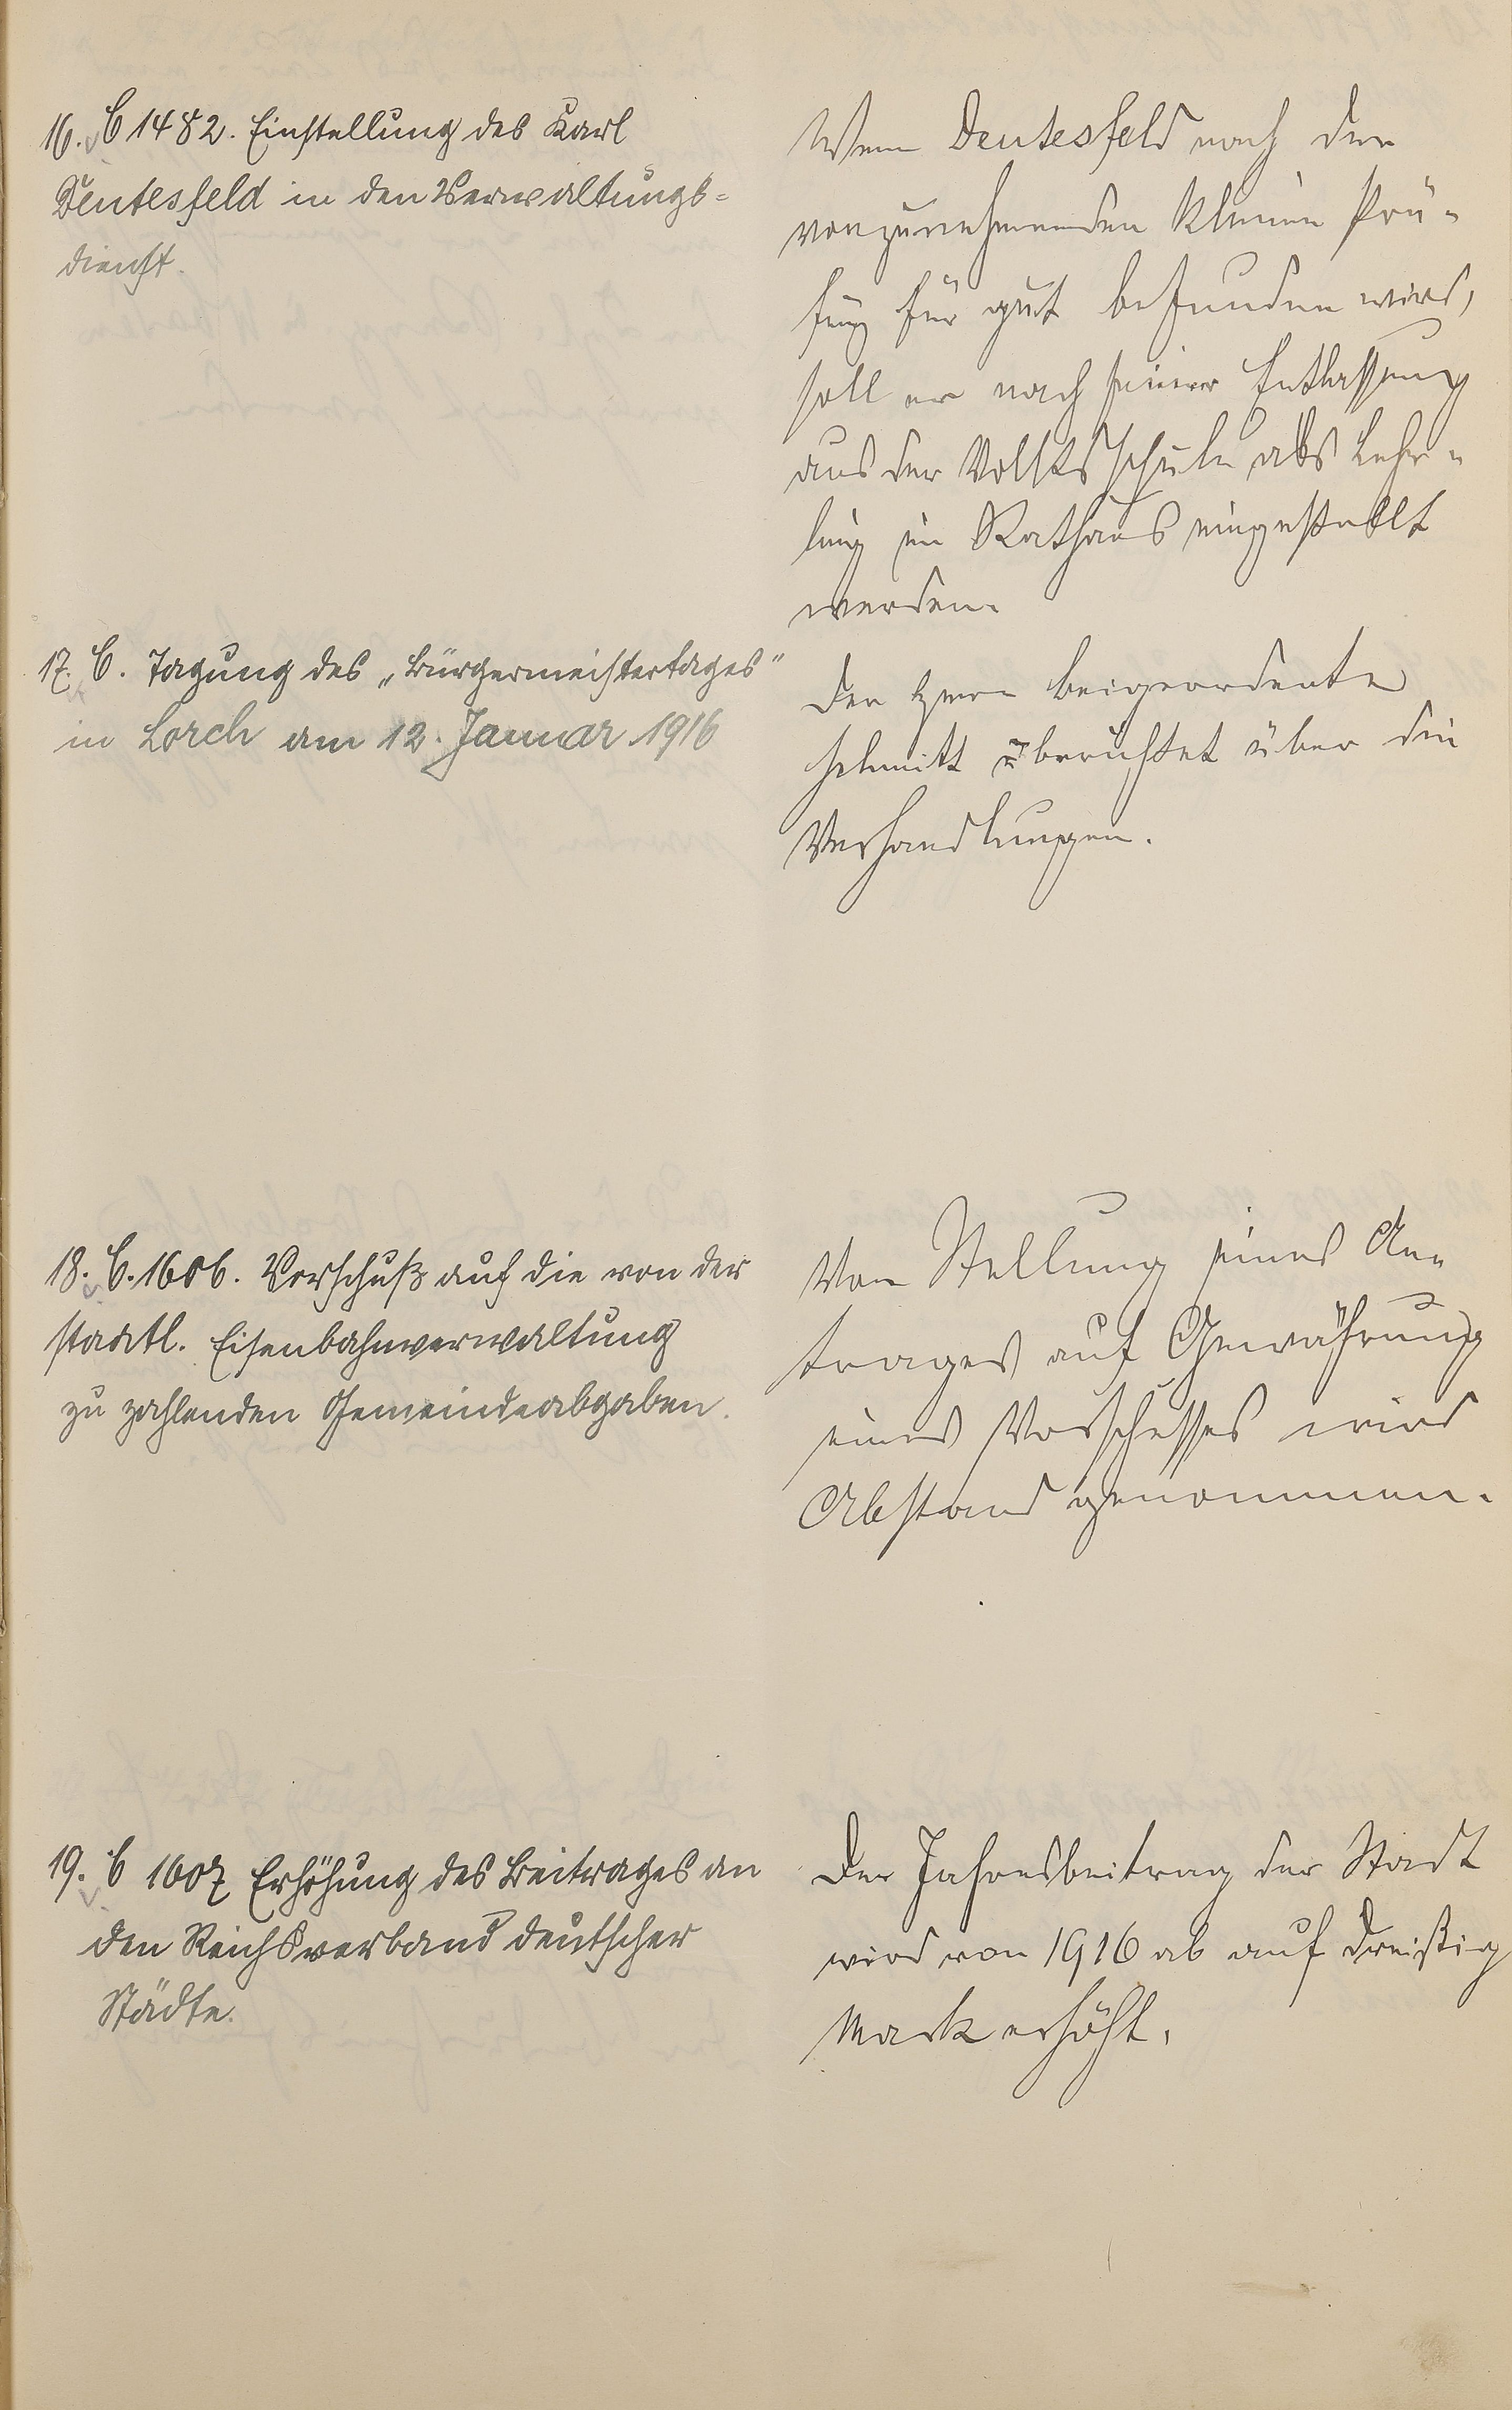 16. C 1482. Einstellung des Karl
Deutesfeld in den Verwaltungs=
dienst.
Wenn Deutesfeld nach der
vorzunehmenden kleinen Prü-
fung für gut befunden wird,
soll er nach seiner Entlassung
aus der Volksschule als Lehr-
ling im Rathaus eingestellt
werden.
17. C. Tagung des „Bürgermeistertages"
in Lorch am 12. Januar 1916
Der Herr Beigeordente
Schmitt berichtet über die
Verhandlungen.
18. C. 1606. Vorschuß auf die von der
staatl. Eisenbahnverwaltung
zu zahlenden Gemeindeabgaben.
Von Stellung eines An-
trages auf Gewährung
eines Vorschusses wird
Abstand genommen.
19. C 1607 Erhöhung des Beitrages an
den Reichsverband deutscher
Städte.
Der Jahresbeitrag der Stadt
wird von 1916 ab auf dreißig
Mark erhöht.